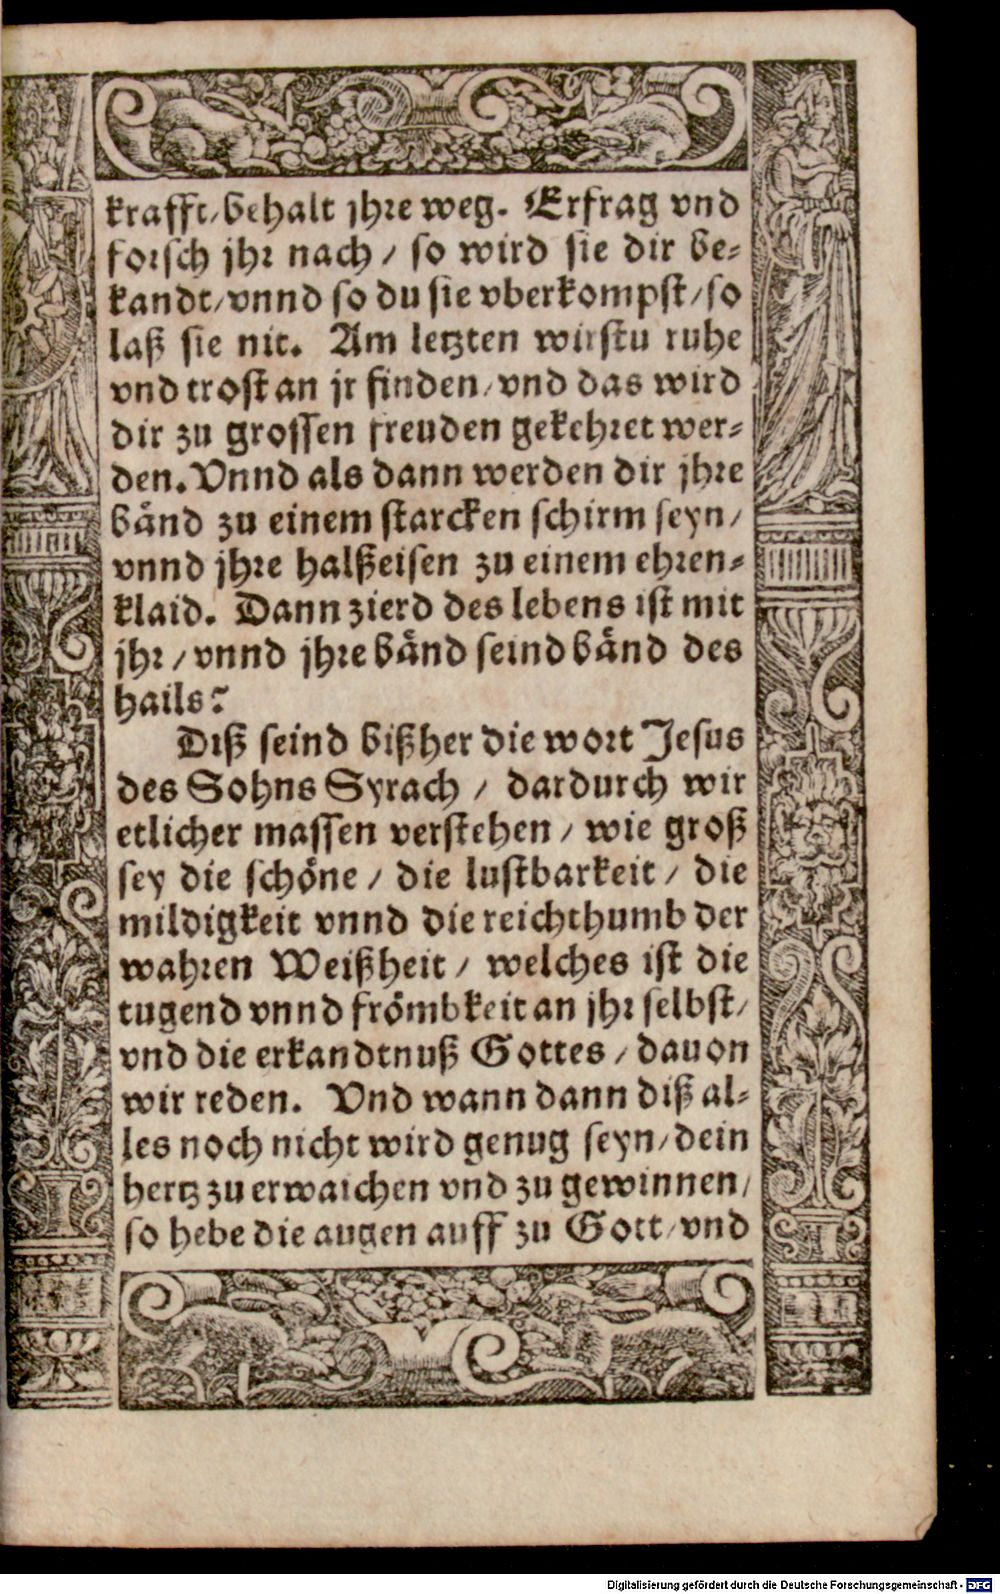 krafft/behalt jhre weg. Erfrag vnd
forsch jhr nach / so wird sie dir be-
kandt/vnnd so du sie vberkompst/so
laß sie nit. Am letzten wirstu ruhe
vnd trost an jr finden/vnd das wird
dir zu grossen freuden gekehret wer-
den. Vnnd als dann werden dir jhre
bänd zu einem starcken schirm seyn/
vnnd jhre halßeisen zu einem ehren-
klaid. Dann zierd des lebens ist mit
jhr / vnnd jhre bänd seind bänd des
hails:
Diß seind bißher die wort Jesus
des Sohns Syrach / dardurch wir
etlicher massen verstehen / wie groß
sey die schöne / die lustbarkeit / die
mildigkeit vnnd die reichthumb der
wahren Weißheit / welches ist die
tugend vnnd frömbkeit an jhr selbst/
vnd die erkandtnuß Gottes / dauon
wir reden. Vnd wann dann diß al-
les noch nicht wird genug seyn/dein
hertz zu erwaichen vnd zu gewinnen/
so hebe die augen auff zu Gott/vnd
Digitalisierung gefördert durch die Deutsche Forschungsgemeinschaft - DFG